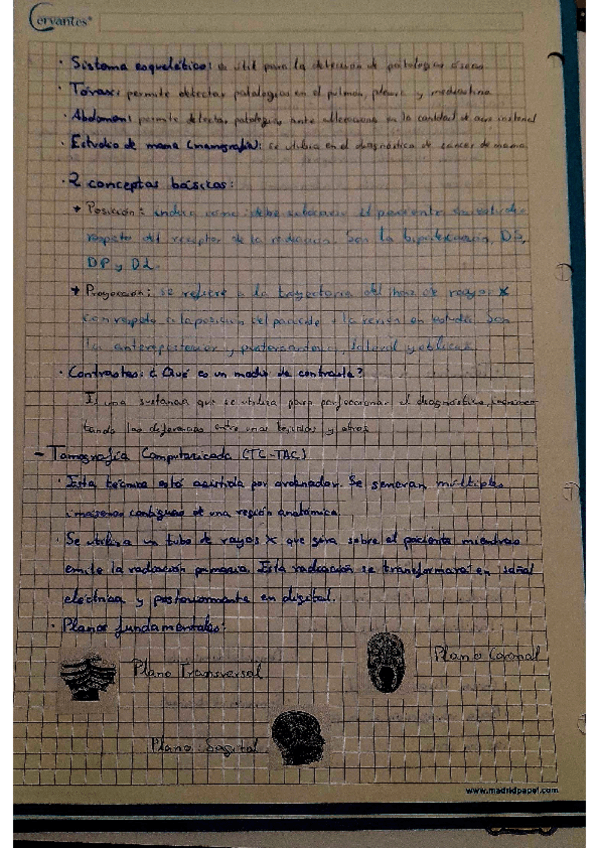 Cervantes
· Sistema esquelético: es útil para la detección de patologías óseas.
· Tórax: permite detectar patologías en el pulmón, pleura y mediastino.
· Abdomen: permite detectar patologías ante alteraciones en la cantidad de aire intestinal
· Estudio de mama (mamografía): se utiliza en el diagnóstico de cáncer de mama.
· 2 conceptos básicos:
→ Posición: indica como debe colocarse el paciente
respecto del receptor de la radiación. Son la bipedestación, DS,
DP y DL.
→ Proyección: se refiere a la trayectoria del haz de rayos X
con respecto a la posición del paciente y la región en estudio. Son
la anteroposterior y posteroanterior, lateral y oblicuas.
· Contrastes: ¿Qué es un medio de contraste?
Es una sustancia que se utiliza para perfeccionar el diagnóstico, incremen-
tando las diferencias entre unos tejidos y otros.
- Tomografía Computarizada (TC-TAC)
· Esta técnica está asistida por ordenador. Se generan múltiples
imágenes contiguas de una región anatómica.
· Se utiliza un tubo de rayos X que gira sobre el paciente mientras
emite la radiación primaria. Esta radiación se transformará en señal
eléctrica y posteriormente en digital.
· Planos fundamentales:
Plano Transversal
Plano Coronal
Plano Sagital
www.madridpapel.com